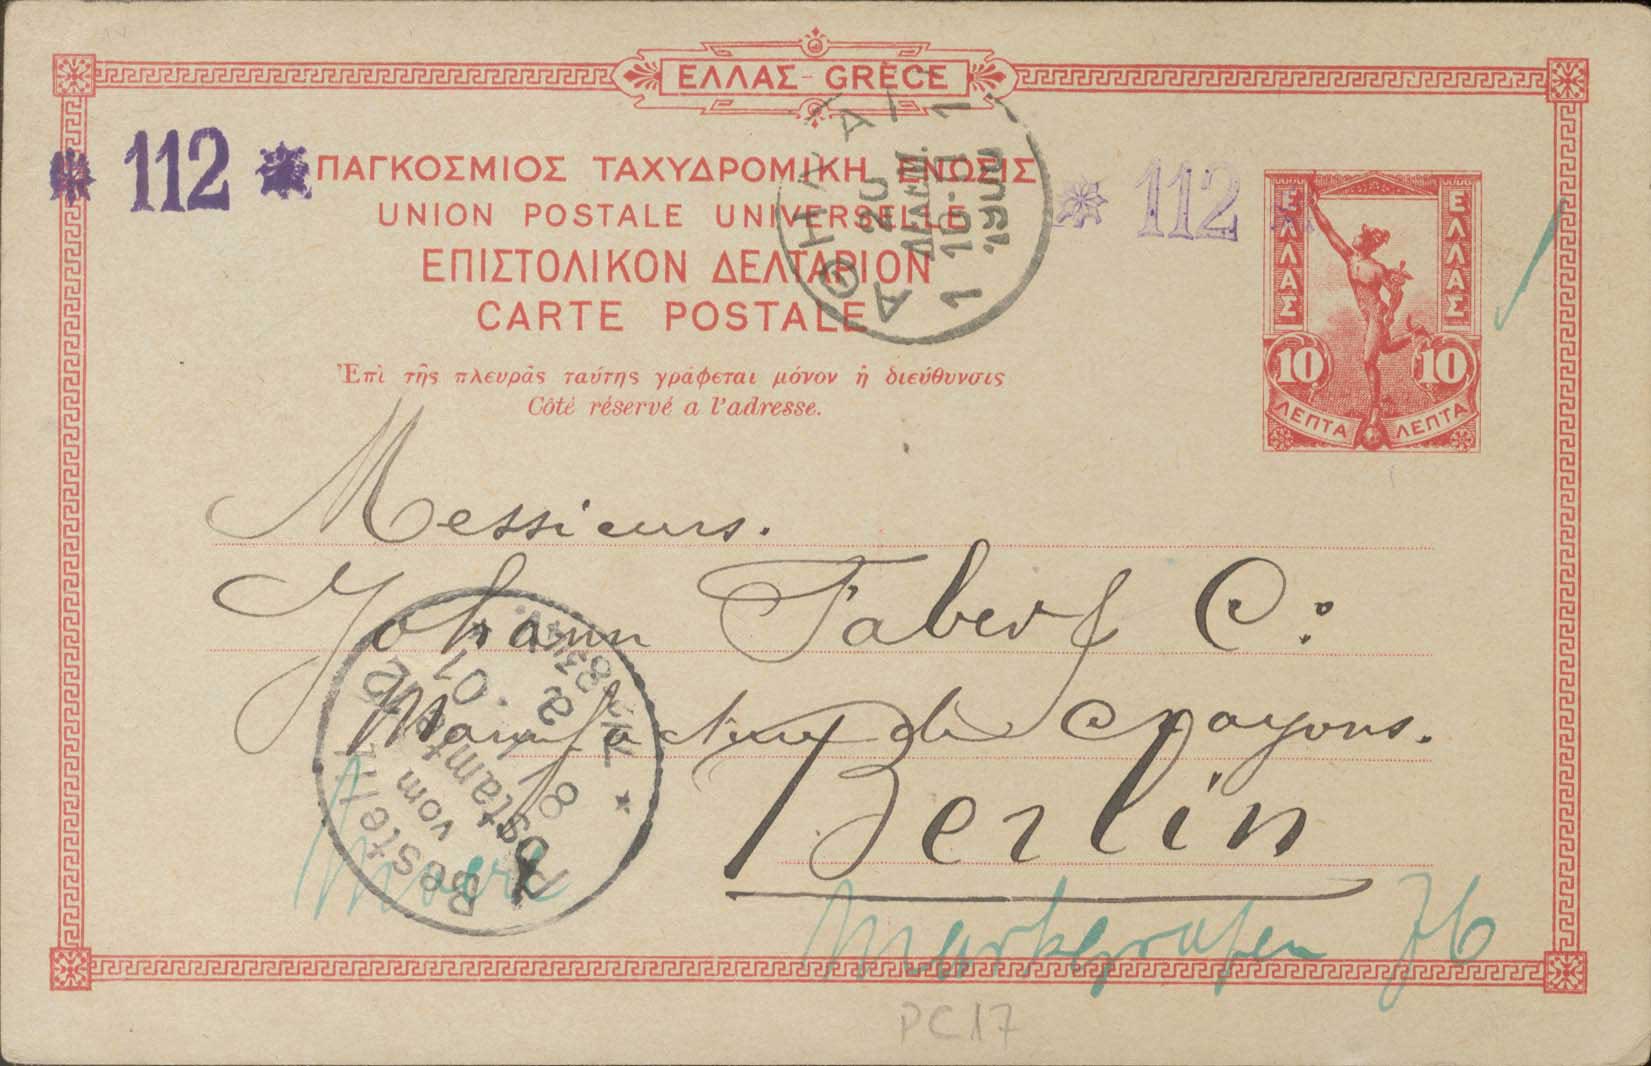 ΕΛΛΑΣ - GRÈCE
* 112 *
ΠΑΓΚΟΣΜΙΟΣ ΤΑΧΥΔΡΟΜΙΚΗ ΕΝΩΣΙΣ
* 112 *
UNION POSTALE UNIVERSELLE
ΕΠΙΣΤΟΛΙΚΟΝ ΔΕΛΤΑΡΙΟΝ
CARTE POSTALE
Ἐπὶ τῆς πλευρᾶς ταύτης γράφεται μόνον ἡ διεύθυνσις
Côté réservé a l'adresse.
ΑΘΗΝΑΙ
20
ΔΕΚΕΜ.
1
1
ΕΛΛΑΣ
ΕΛΛΑΣ
10
10
ΛΕΠΤΑ
ΛΕΠΤΑ
Messieurs.
Johann Faber & Co:
Manufacture de crayons.
Berlin
Bestellt
vom
Postamte
8
2
01
8¾-
12
Markgrafen 76
PC17